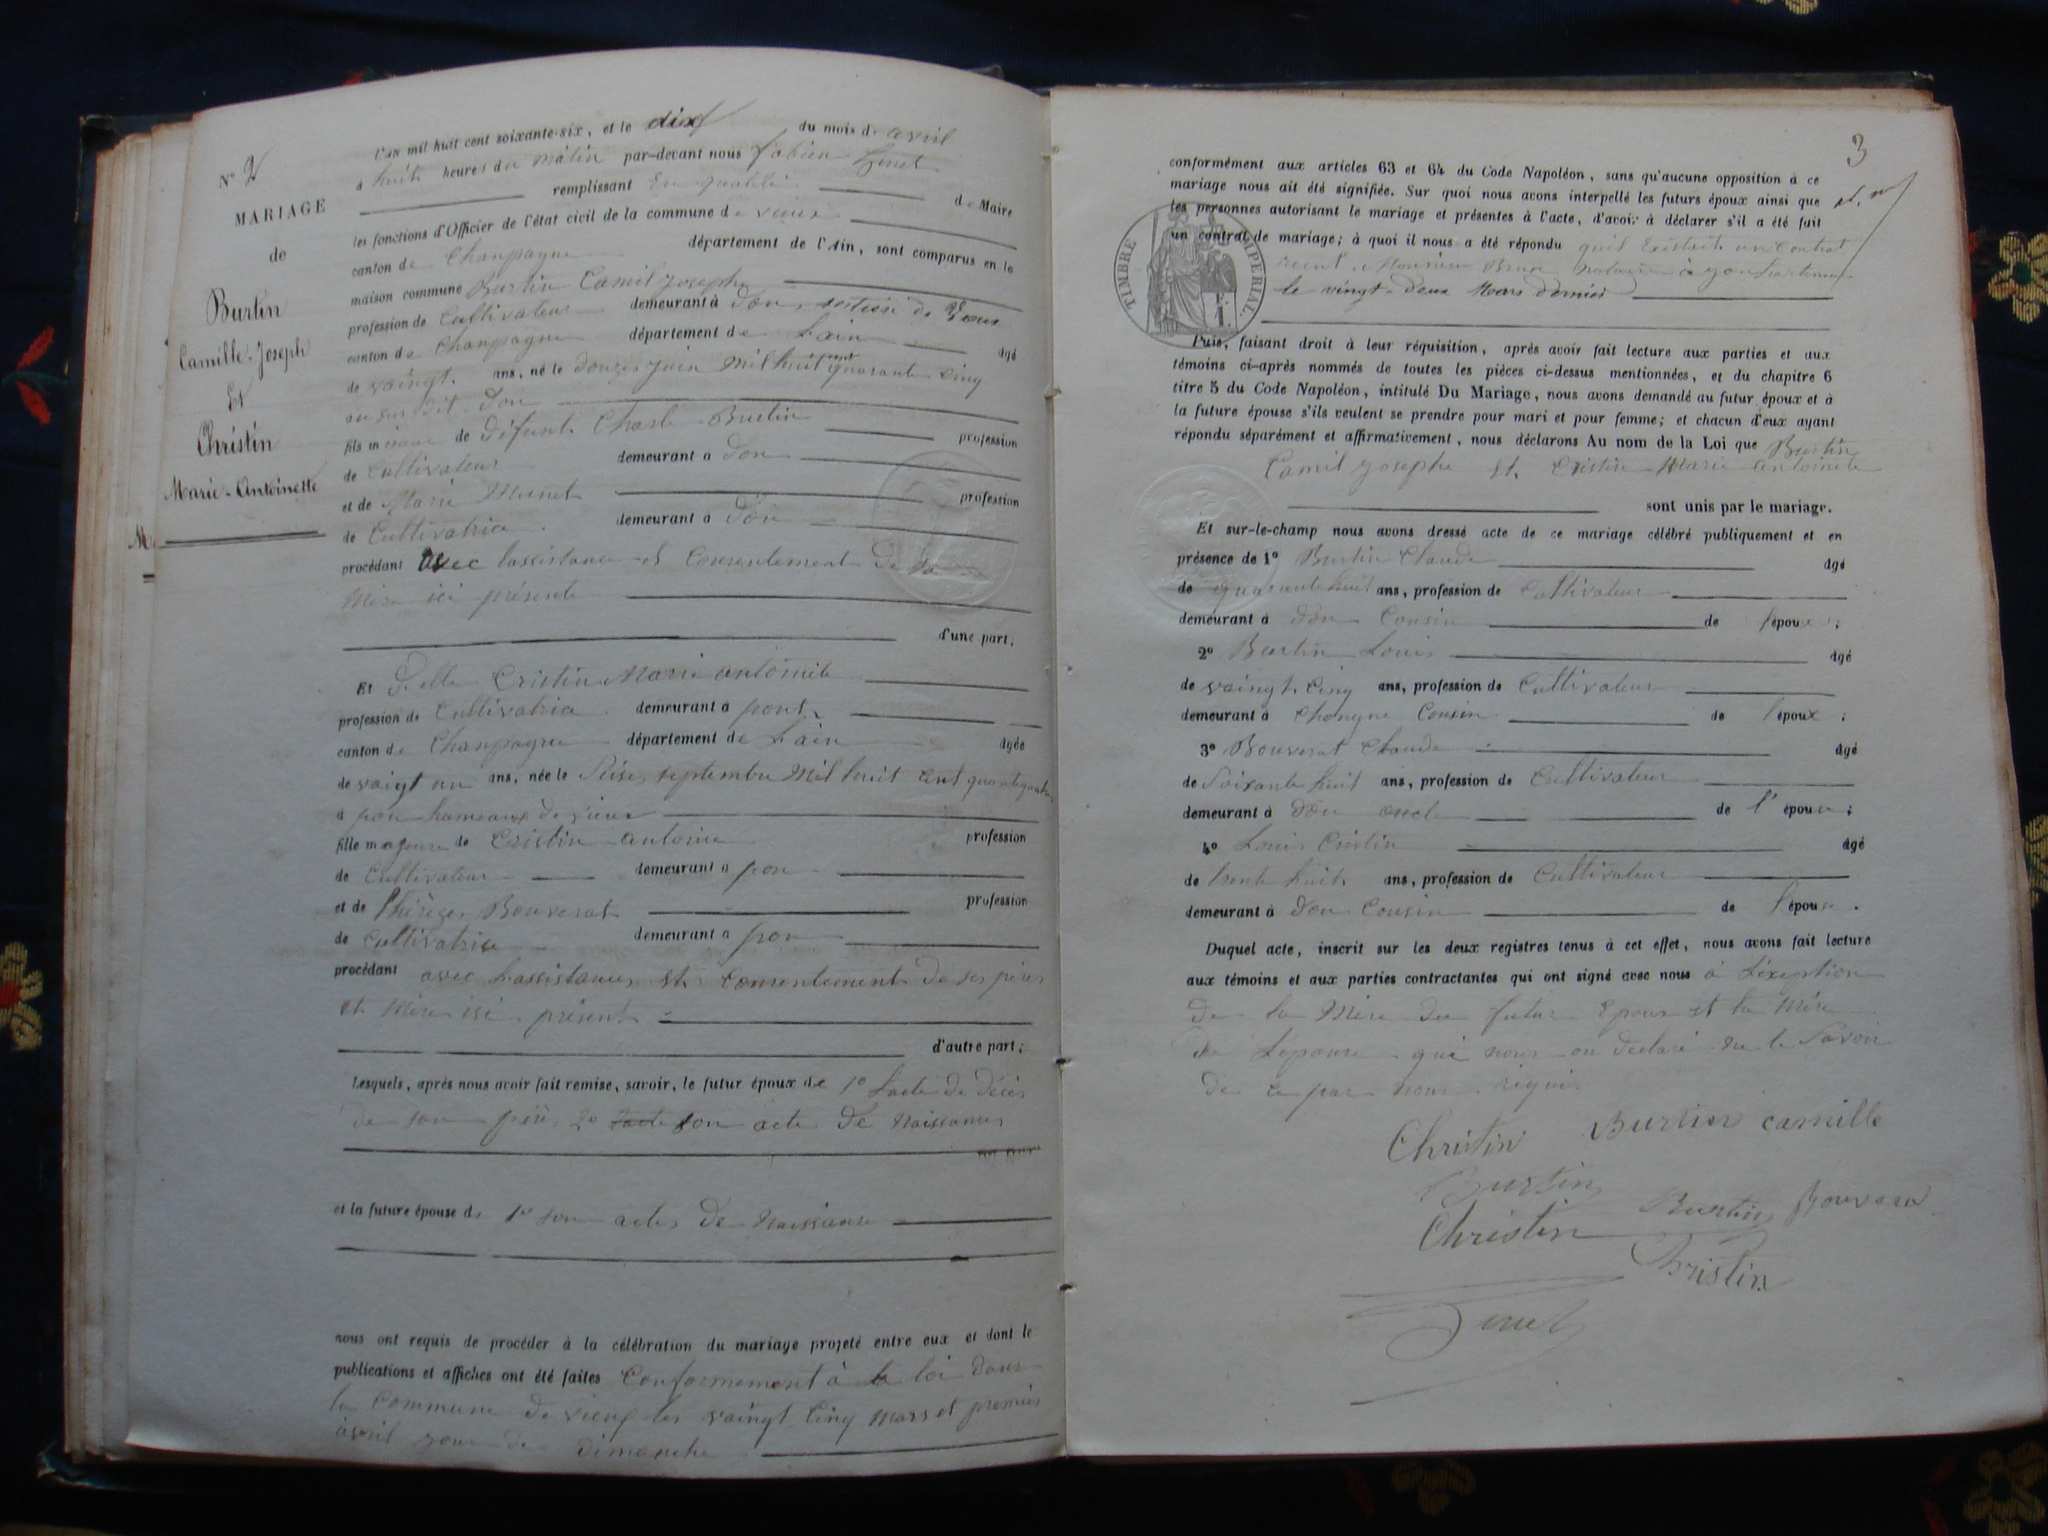 N° 2
MARIAGE
de
Burtin
Camille-Joseph
Et
Christin
Marie-Antoinette
L'an mil huit cent soixante-six, et le dix du mois de avril
à huit heures du matin par-devant nous fabien
remplissant En qualité de Maire
les fonctions d'Officier de l'état civil de la commune de vieux
canton de Champagne département de l'Ain, sont comparus en la
maison commune Burtin Camil Josephe
profession de Cultivateur demeurant à don, section de Vieux
canton de Champagne département de Lain âgé
de vaingt ans, né le douze juin mil huit cent quarante cinq
au sus dit don
fils mineur de défunt Charle Burtin profession
de Cultivateur demeurant à don
et de Marie Munet profession
de Cultivatrice demeurant à don
procédant avec lassistance et Consentement de sa
Mère ici présente
d'une part;
Et delle Cristin Marie antoinete
profession de Cultivatrice demeurant à pont
canton de Champagne département de Lain âgée
de vaigt un ans, née le seise septembre mil huit cent quarante quatre
à pon hameaux de vieux
fille majeure de Cristin antoine profession
de Cultivateur demeurant à pon
et de Thérèze Bouverat profession
de Cultivatrice demeurant à pon
procédant avec lassistance et Consentement de ses père
et Mère isi présent
d'autre part;
Lesquels, après nous avoir fait remise, savoir, le futur époux de 1° Lacte de décès
de son père 2° son acte de Naissance
et la future épouse de 1° son acte de Naissance
nous ont requis de procéder à la célébration du mariage projeté entre eux et dont le
publications et affiches ont été faites Conformement à la loi dans
la Commune de vieux les vaingt Cinq Mars et premier
avril jour de dimanche
3
conformément aux articles 63 et 64 du Code Napoléon, sans qu'aucune opposition à ce
mariage nous ait été signifiée. Sur quoi nous avons interpellé les futurs époux ainsi que
les personnes autorisant le mariage et présentes à l'acte, d'avoir à déclarer s'il a été fait
un contrat de mariage; à quoi il nous a été répondu quil Existait un Contrat
Monsieur notaire à
le vingt-deux Mars dernier
TIMBRE IMPERIAL
1 F.
Puis, faisant droit à leur réquisition, après avoir fait lecture aux parties et aux
témoins ci-après nommés de toutes les pièces ci-dessus mentionnées, et du chapitre 6
titre 5 du Code Napoléon, intitulé Du Mariage, nous avons demandé au futur époux et à
la future épouse s'ils veulent se prendre pour mari et pour femme; et chacun d'eux ayant
répondu séparément et affirmativement, nous déclarons Au nom de la Loi que Burtin
Camil Josephe et Cristin Marie antoinete
sont unis par le mariage.
Et sur-le-champ nous avons dressé acte de ce mariage célébré publiquement et en
présence de 1° Burtin Claude âgé
de quarante huit ans, profession de Cultivateur
demeurant à don Cousin de l'époux;
2° Burtin Louis âgé
de vaingt Cinq ans, profession de Cultivateur
demeurant à Chongne Cousin de l'époux;
3° Bouverat Claude âgé
de Soixante huit ans, profession de Cultivateur
demeurant à don oncle de l'épouse;
4° Louis Cristin âgé
de trente huit ans, profession de Cultivateur
demeurant à don Cousin de l'épouse.
Duquel acte, inscrit sur les deux registres tenus à cet effet, nous avons fait lecture
aux témoins et aux parties contractantes qui ont signé avec nous à Léxeption
de la Mère du futur Epoux et la Mère
de Lépouse qui nous on déclaré ne le Savoir
de ce par nous requis
Christin Burtin camille
Burtin
Christin Burtin Bouvera
Christin